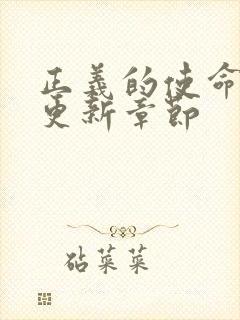 正義的使命
更新章節
砧菜菜